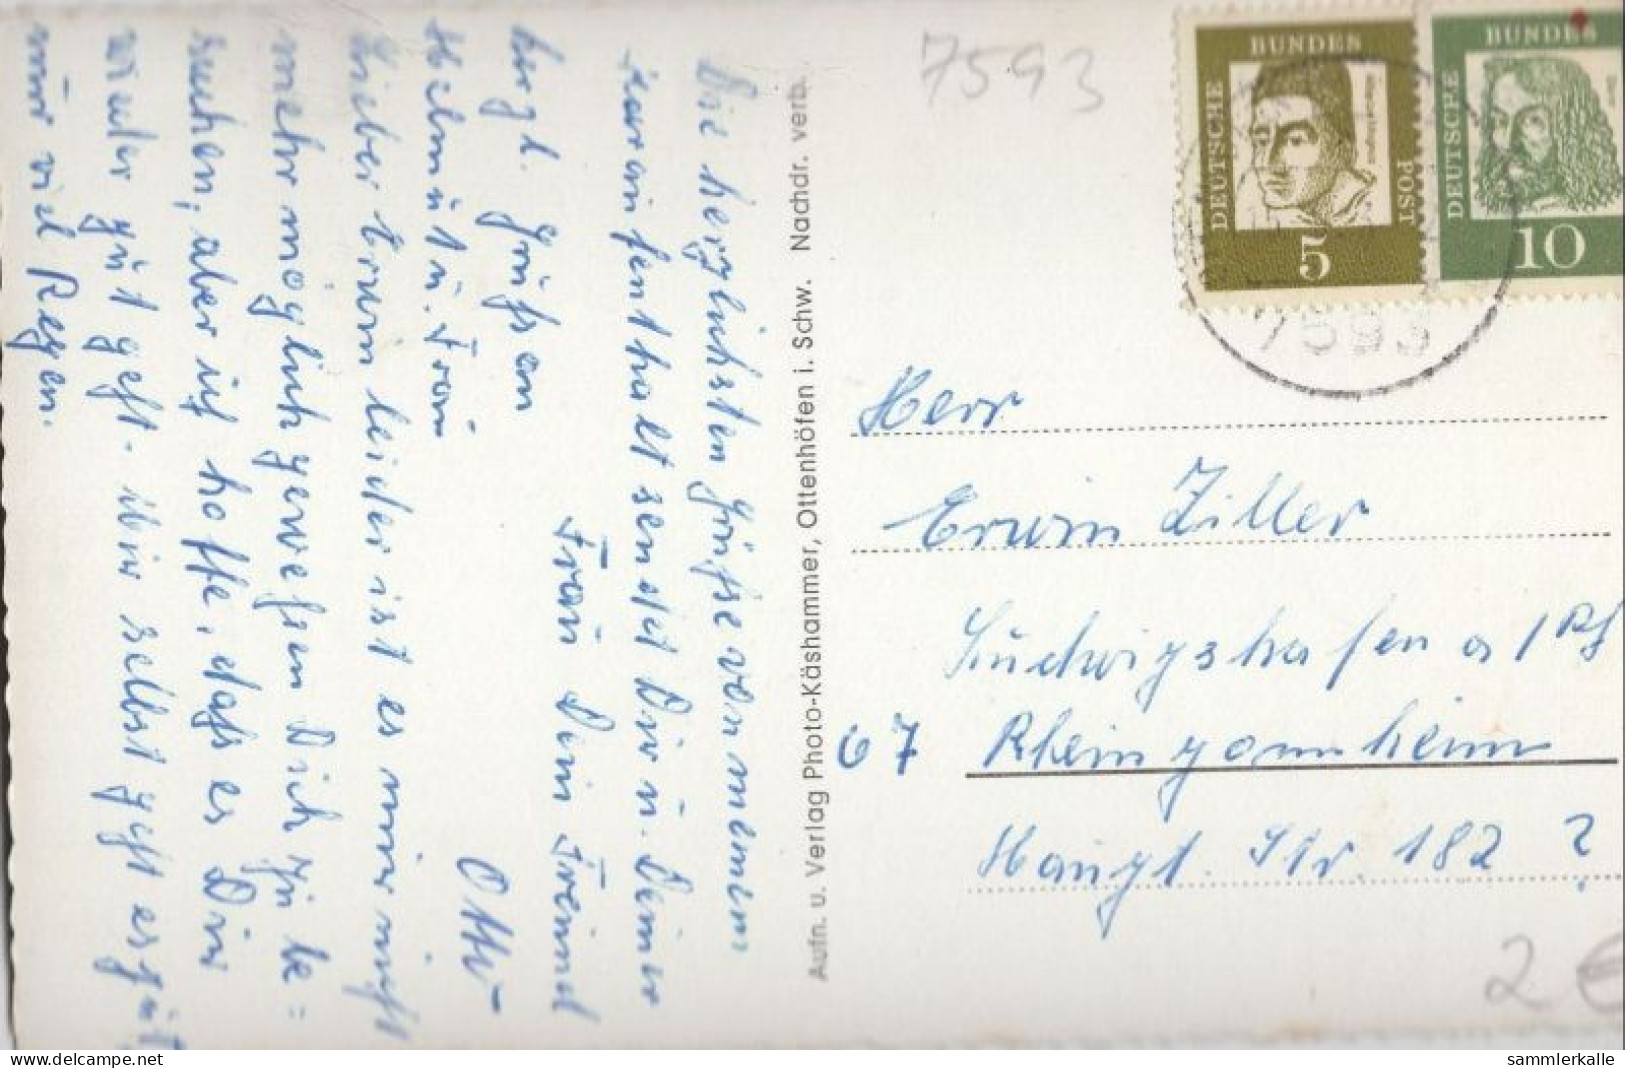 Die herzlichsten Grüsse von meinem
Kuraufenthalt sendet Dir u. Deiner
Frau Dein Freund
Otto
herzl. Grüssen
Helmut u. Frau
Lieber Erwin leider ist es mir nicht
mehr möglich gewesen Dich zu be=
suchen, aber ich hoffe, dass es Dir
wieder gut geht. Mir selbst geht es gut,
nur viel Regen.
Aufn. u. Verlag Photo-Käshammer, Ottenhöfen i. Schw. Nachdr. verb.
7593
DEUTSCHE
BUNDES
POST
5
DEUTSCHE
BUNDES
10
7593
Herr
Erwin Ziller
Ludwigshafen a/Rh
67 Rheingönnheim
Haupt. Str. 182 ?
2 €
delcampe.net
sammlerkalle